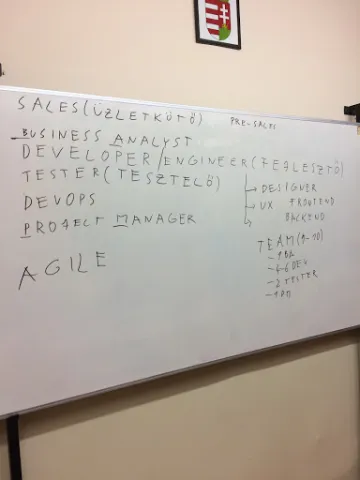 SALES(ÜZLETKÖTŐ) PRE-SALES
BUSINESS ANALYST
DEVELOPER/ENGINEER(FEJLESZTŐ)
TESTER(TESZTELŐ)
DEVOPS
PROJECT MANAGER
AGILE
DESIGNER
UX FRONTEND
BACKEND
TEAM(8-10)
-1 BA
-4-6 DEV
-2 TESTER
-1 PM